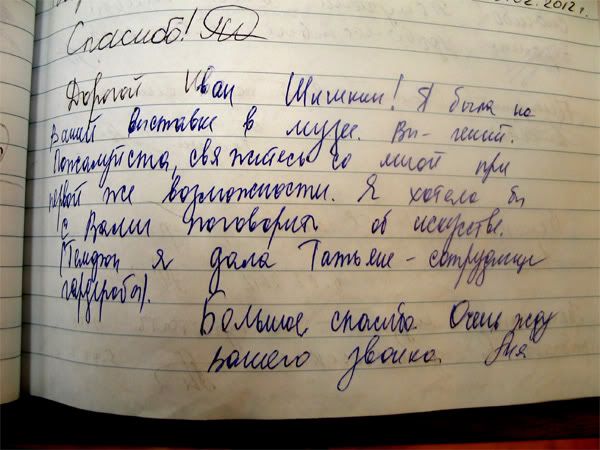 02.2012г.
Спасибо!
Дорогой Иван Шишкин! Я была на
Вашей выставке в музее. Вы - гений.
Пожалуйста, свяжитесь со мной при
первой же возможности. Я хотела бы
с Вами поговорить об искусстве.
(Телефон я дала Татьяне - сотруднице
гардероба).
Большое спасибо. Очень жду
вашего звонка.